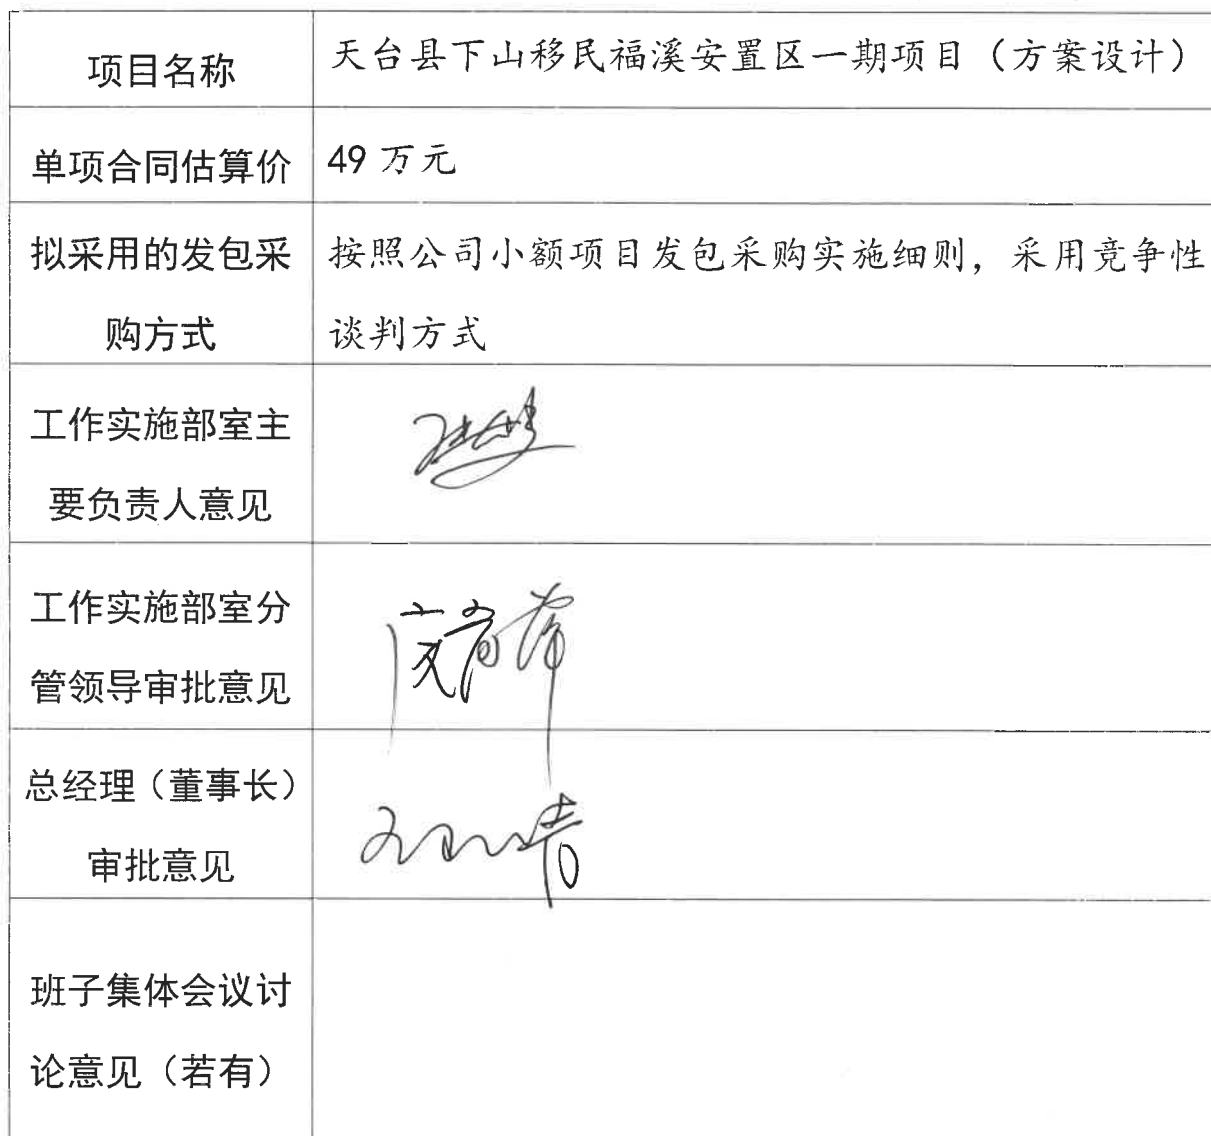 项目名称
天台县下山移民福溪安置区一期项目（方案设计）
单项合同估算价
49 万元
拟采用的发包采
购方式
按照公司小额项目发包采购实施细则，采用竞争性
谈判方式
工作实施部室主
要负责人意见
工作实施部室分
管领导审批意见
总经理（董事长）
审批意见
班子集体会议讨
论意见（若有）